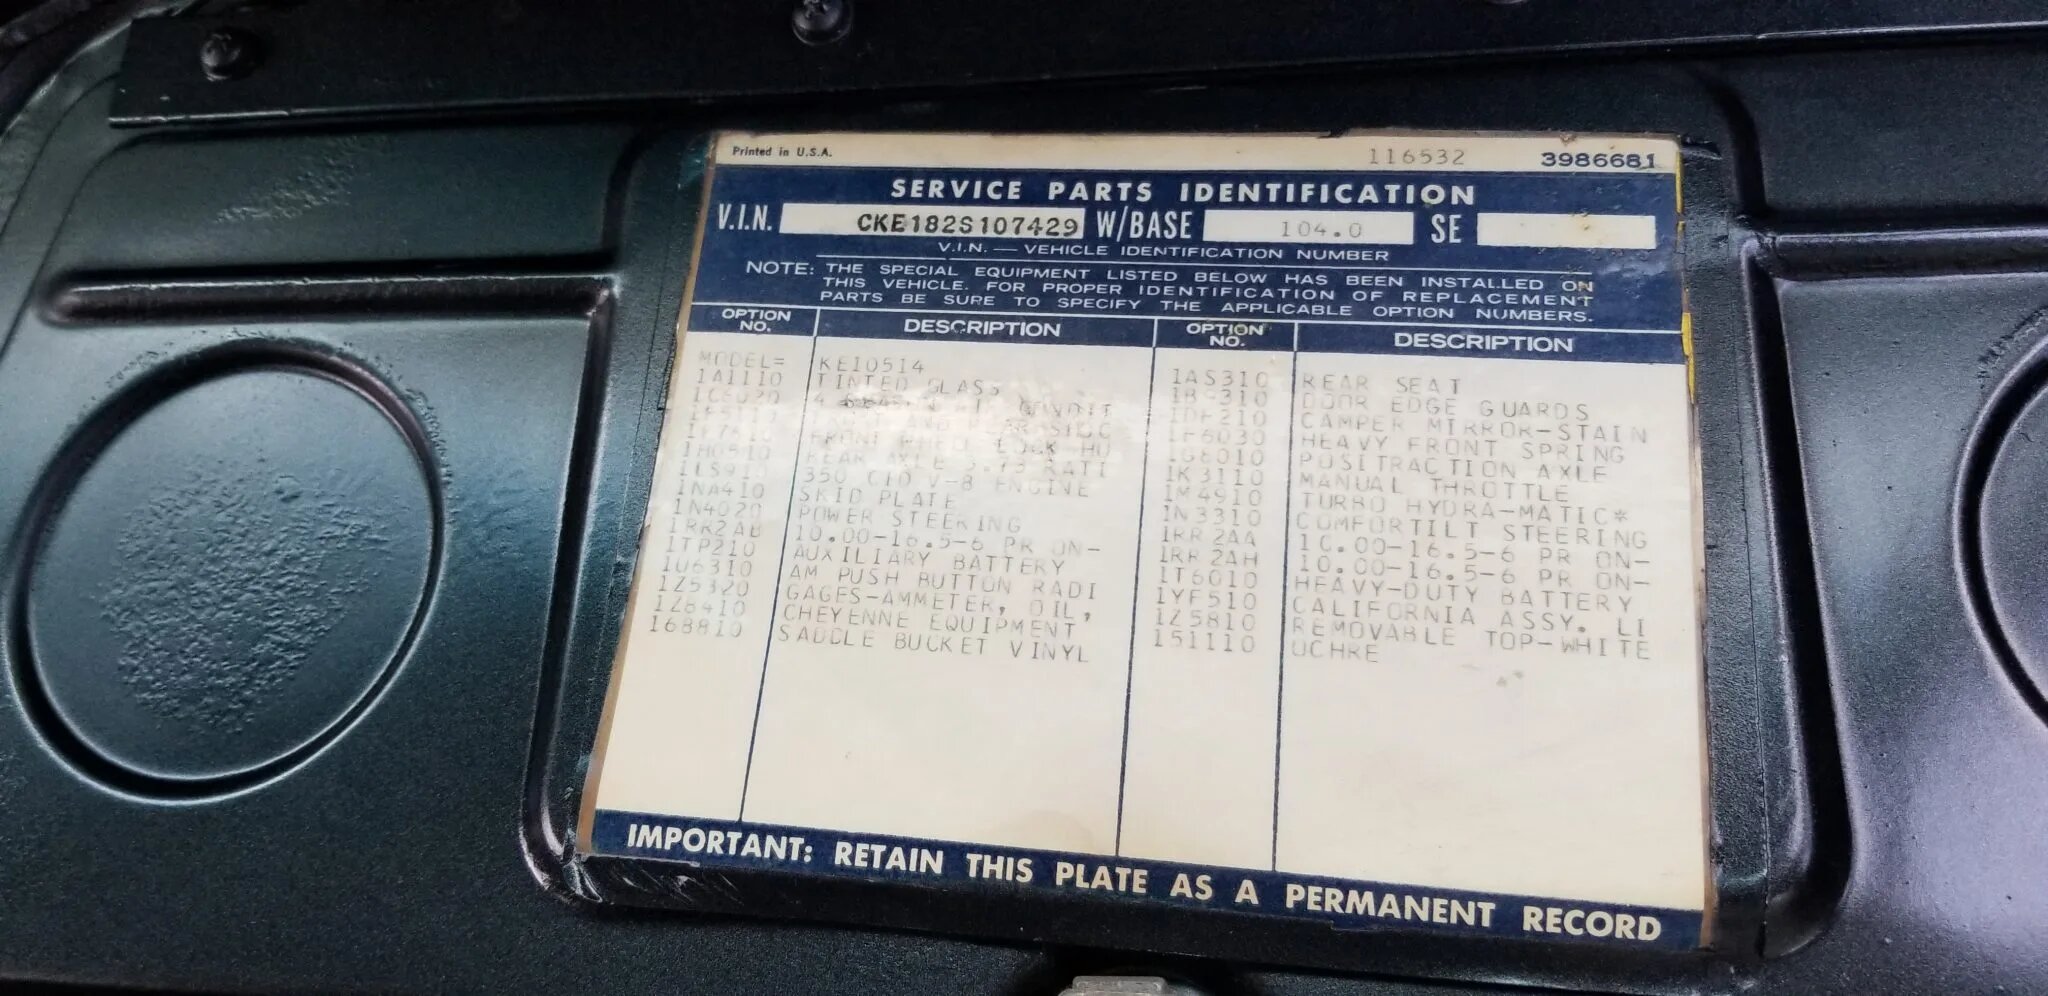 Printed in U.S.A. 116532 3986681
SERVICE PARTS IDENTIFICATION
V.I.N. CKE182S107429 W/BASE 104.0 SE
V.I.N. — VEHICLE IDENTIFICATION NUMBER
NOTE: THE SPECIAL EQUIPMENT LISTED BELOW HAS BEEN INSTALLED ON
THIS VEHICLE. FOR PROPER IDENTIFICATION OF REPLACEMENT
PARTS BE SURE TO SPECIFY THE APPLICABLE OPTION NUMBERS.
OPTION NO. DESCRIPTION OPTION NO. DESCRIPTION
MODEL= KE10514
1A1110 TINTED GLASS
AND
FRONT WHEEL LOCK HU
REAR AXLE 3.73 RATI
1LS910 350 CID V-8 ENGINE
1NA410 SKID PLATE
1N4020 POWER STEERING
1RR2AB 10.00-16.5-6 PR ON-
1TP210 AUXILIARY BATTERY
1U6310 AM PUSH BUTTON RADI
1Z5320 GAGES-AMMETER, OIL,
1Z8410 CHEYENNE EQUIPMENT
168810 SADDLE BUCKET VINYL
1AS310 REAR SEAT
1B9310 DOOR EDGE GUARDS
1DF210 CAMPER MIRROR-STAIN
1F6030 HEAVY FRONT SPRING
1G8010 POSITRACTION AXLE
1K3110 MANUAL THROTTLE
1M4910 TURBO HYDRA-MATIC*
1N3310 COMFORTILT STEERING
1RR2AA 10.00-16.5-6 PR ON-
1RR2AH 10.00-16.5-6 PR ON-
1T6010 HEAVY-DUTY BATTERY
1YF510 CALIFORNIA ASSY. LI
1Z5810 REMOVABLE TOP-WHITE
151110 OCHRE
IMPORTANT: RETAIN THIS PLATE AS A PERMANENT RECORD